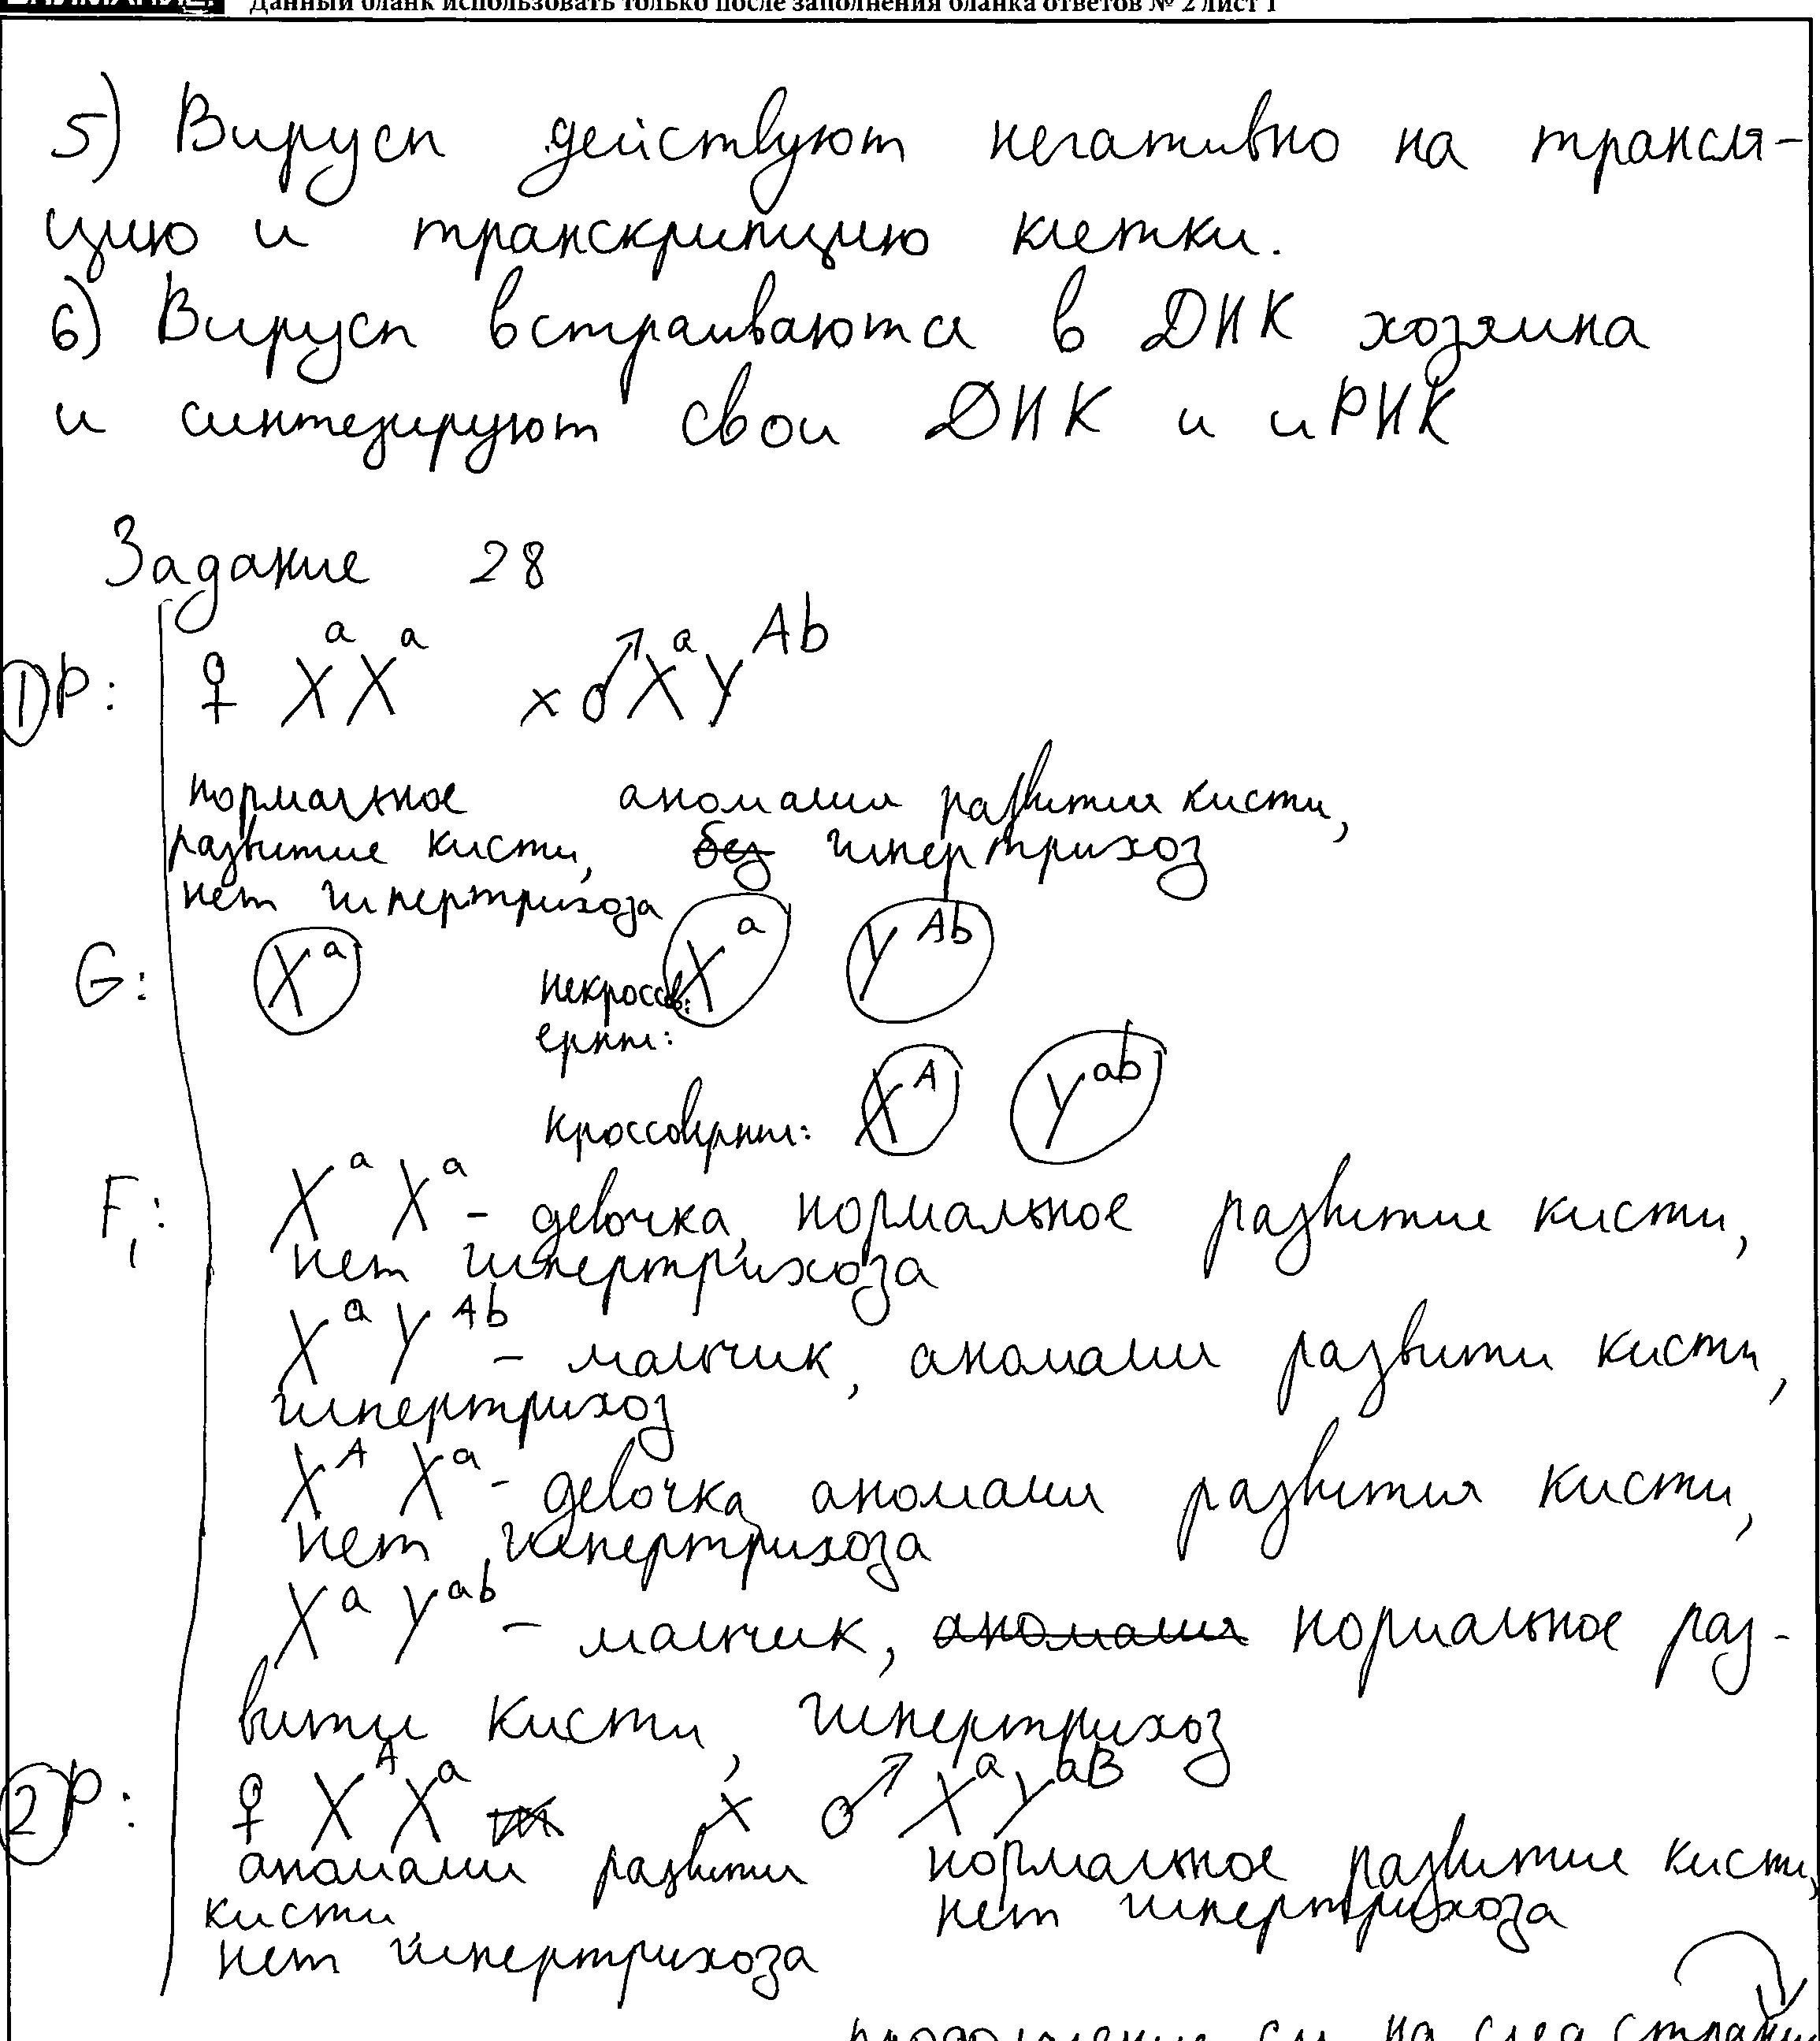 Данный бланк использовать только после заполнения бланка ответов № 2 лист 1
5) Вирусы действуют негативно на трансля-
цию и транскрипцию клетки.
6) Вирусы встраиваются в ДНК хозяина
и синтезируют свои ДНК и иРНК
Задание 28
① P: ♀ XᵃXᵃ x ♂ XᵃYᴬᵇ
нормальное аномалия развития кисти,
развитие кисти, без гипертрихоз
нет гипертрихоза
G: Xᵃ некроссов. Xᵃ Yᴬᵇ
ерны:
кроссоверны: Xᴬ Yᵃᵇ
F₁: XᵃXᵃ - девочка, нормальное развитие кисти,
нет гипертрихоза
XᵃYᴬᵇ - мальчик, аномалии развити кисти,
гипертрихоз
XᴬXᵃ - девочка, аномалии развития кисти,
нет гипертрихоза
XᵃYᵃᵇ - мальчик, аномалия нормальное раз-
вити кисти, гипертрихоз
② P: ♀ XᴬXᵃ x ♂ XᵃYᵃᴮ
аномалии развити нормальное развитие кисти,
кисти, нет гипертрихоза
нет гипертрихоза
продолжение см на след